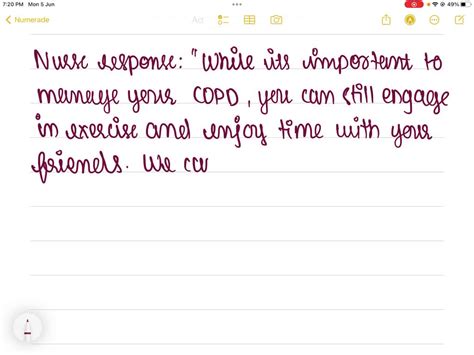 7:20 PM Mon 5 Jun
49%
Numerade
Nurse response: "While its important to
manage your COPD, you can still engage
in exercise and enjoy time with your
friends. We ca